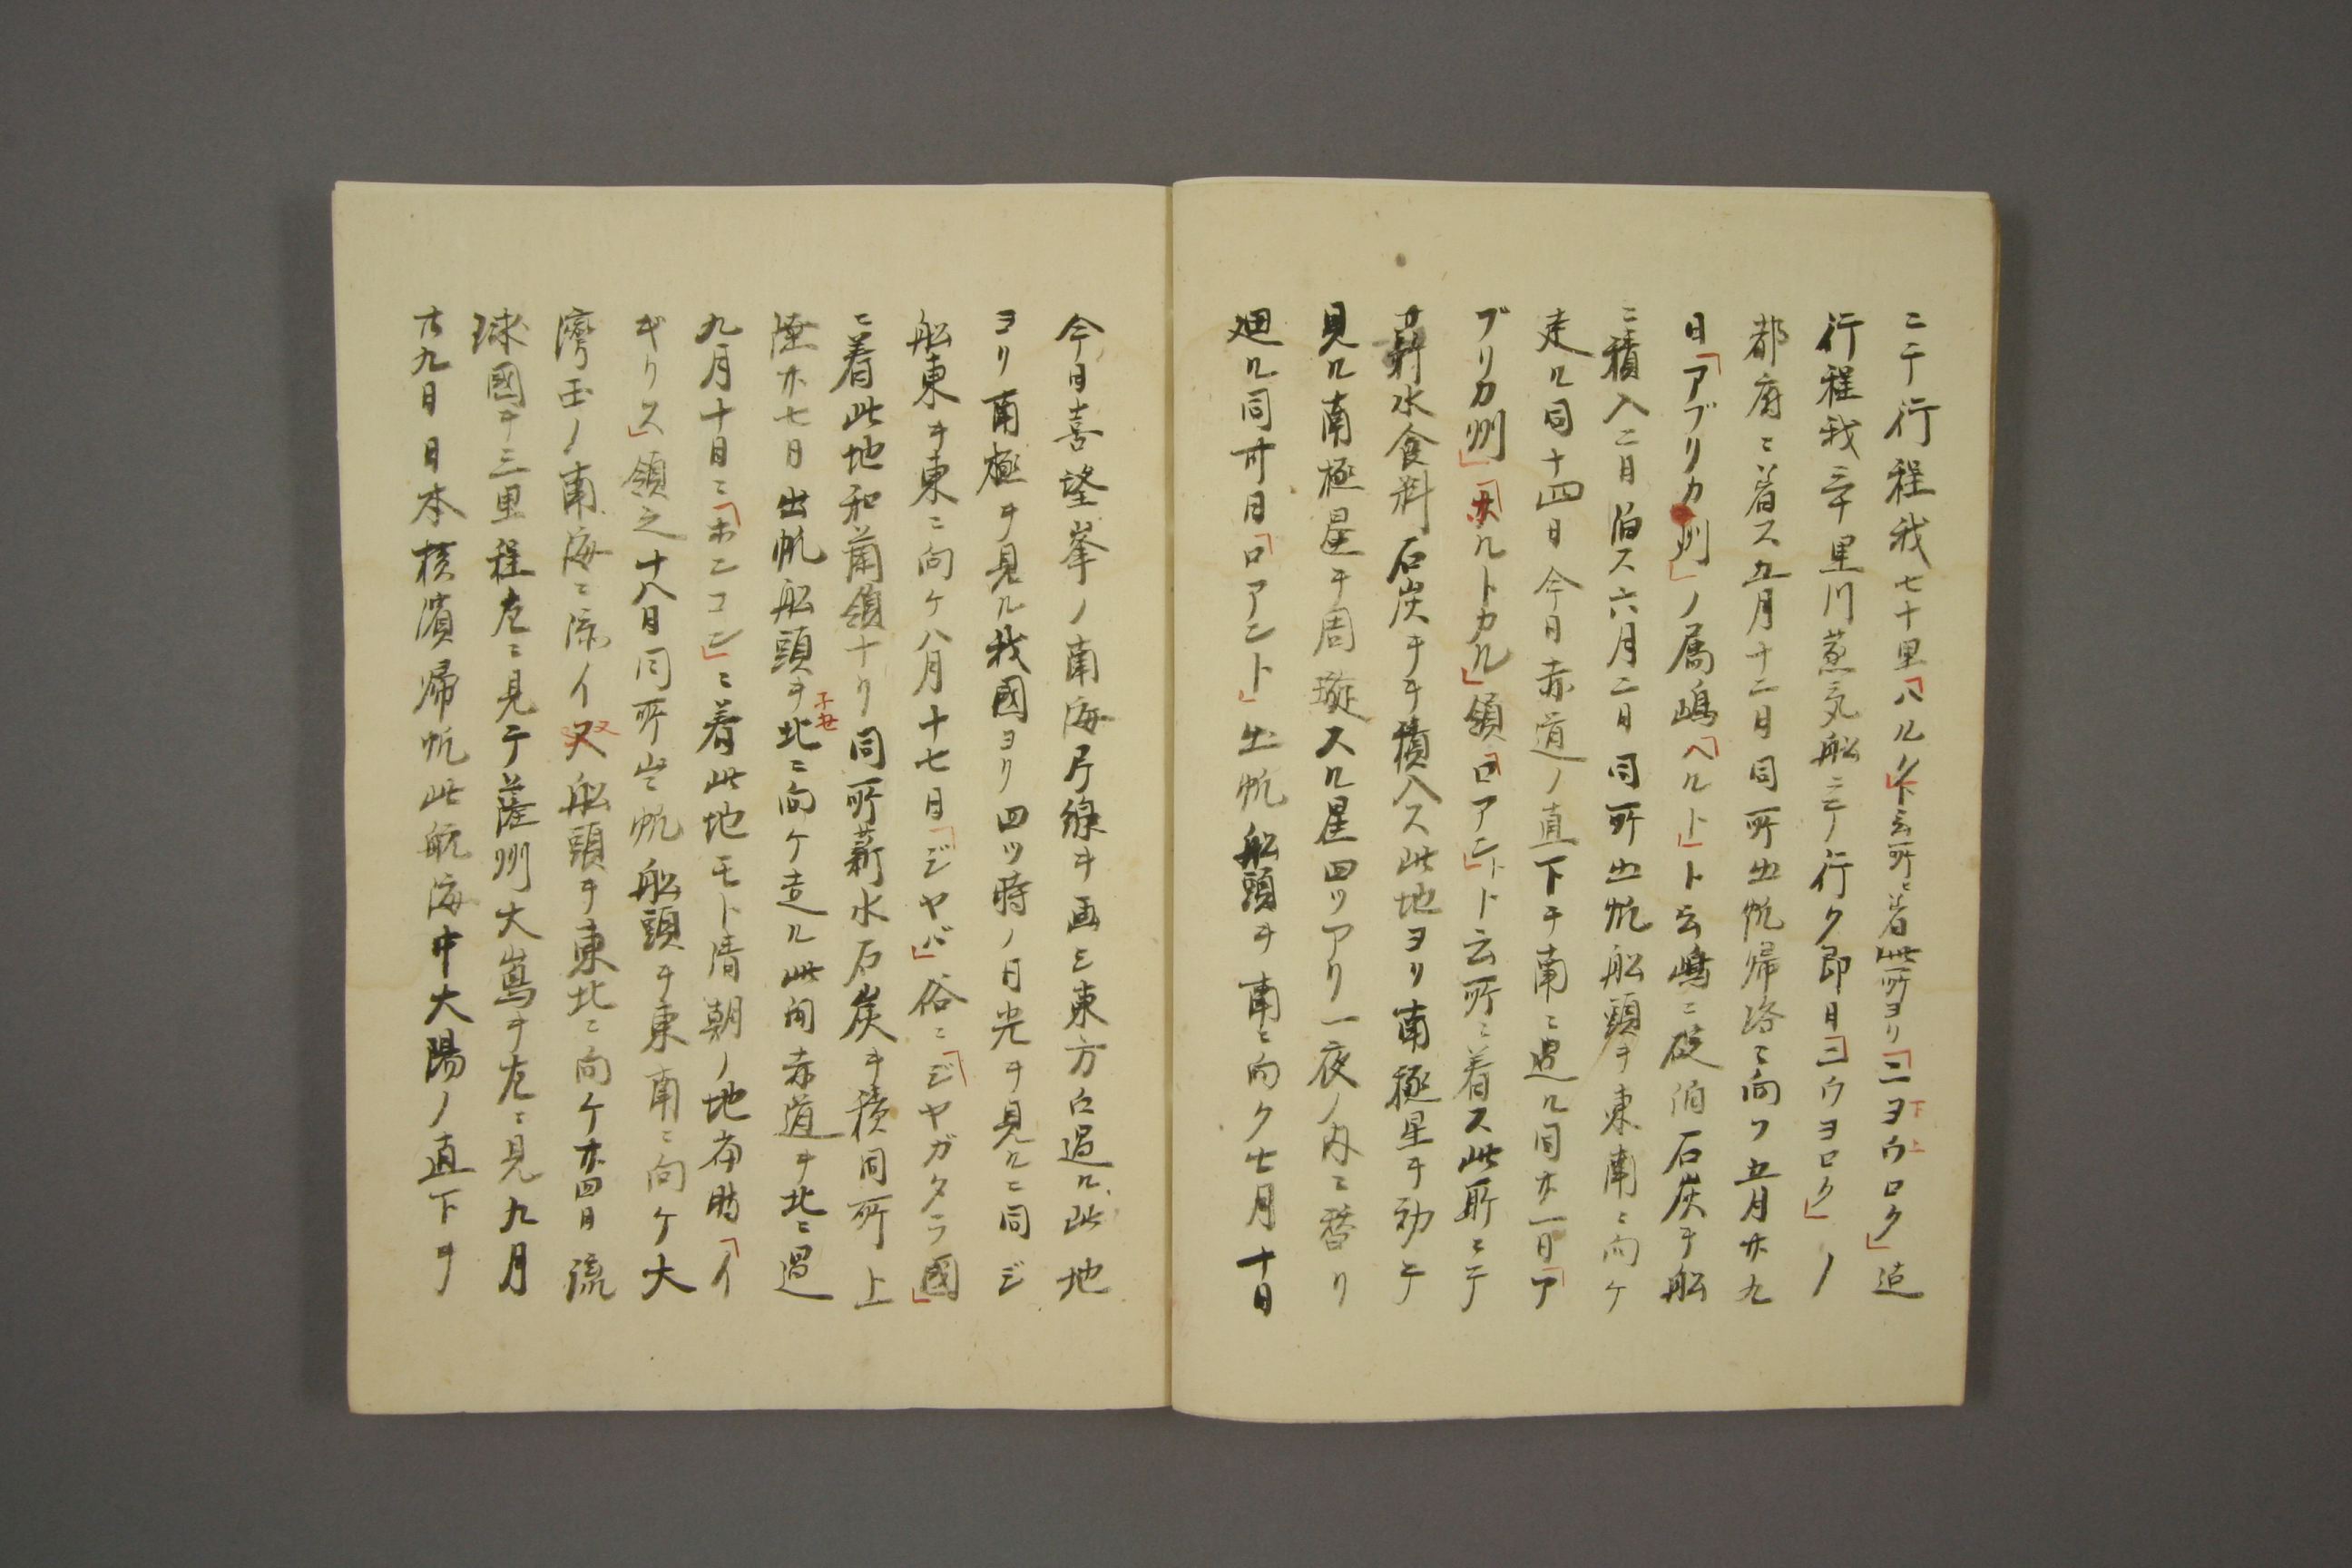 ニテ行程我七十里「ハルノ」ト云所ニ着此所ヨリ「ニヨウロク」迠
行程我三千里川蒸気船ニテ行ク即日「ニウヨロク」ノ
都府ニ着ス五月十二日同所出帆帰路ニ向フ五月廾九
日「アブリカ州」ノ属嶋「ヘルト」ト云嶋ニ碇泊石炭ヲ船
ニ積入二日泊ス六月二日同所出帆船頭ヲ東南ニ向ケ
走ル同十四日今日赤道ノ直下ヲ南ニ過ル同廾一日「ア
ブリカ州」「ホルトカル」領「ロアント」ト云所ニ着ス此所ニテ
薪水食料石炭ヲ積入ス此地ヨリ南極星ヲ初テ
見ル南極星ヲ周璇スル星四ツアリ一夜ノ内ニ替リ
廻ル同卅日「ロアント」出帆船頭ヲ南ニ向ク七月十日
今日喜望峯ノ南海斥線ヲ画シ東方ニ過ル此地
ヨリ南極ヲ見ル我國ヨリ四ツ時ノ日光ヲ見ルニ同ジ
船東ヲ東ニ向ケ八月十七日「ジヤバ」俗ニ「ジヤガタラ國」
ニ着此地和蘭領ナリ同所薪水石炭ヲ積同所上
陸廾七日出帆船頭ヲ北ニ向ケ走ル此間赤道ヲ北ニ過
九月十日ニ「ホンコン」ニ着此地モト清朝ノ地當時「イ
ギリス」領之十八日同所出帆船頭ヲ東南ニ向ケ大
湾玉ノ南海ニ添イ又船頭ヲ東北ニ向ケ廾四日流
球國ヲ三里程左ニ見テ薩州大嶌ヲ左ニ見九月
廾九日日本横濱帰帆此航海中大陽ノ直下ヲ